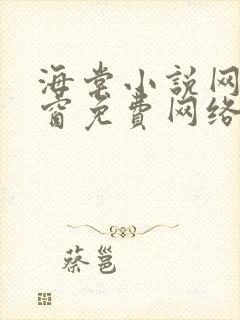 海棠小说网
窗免费网络
蔡邕